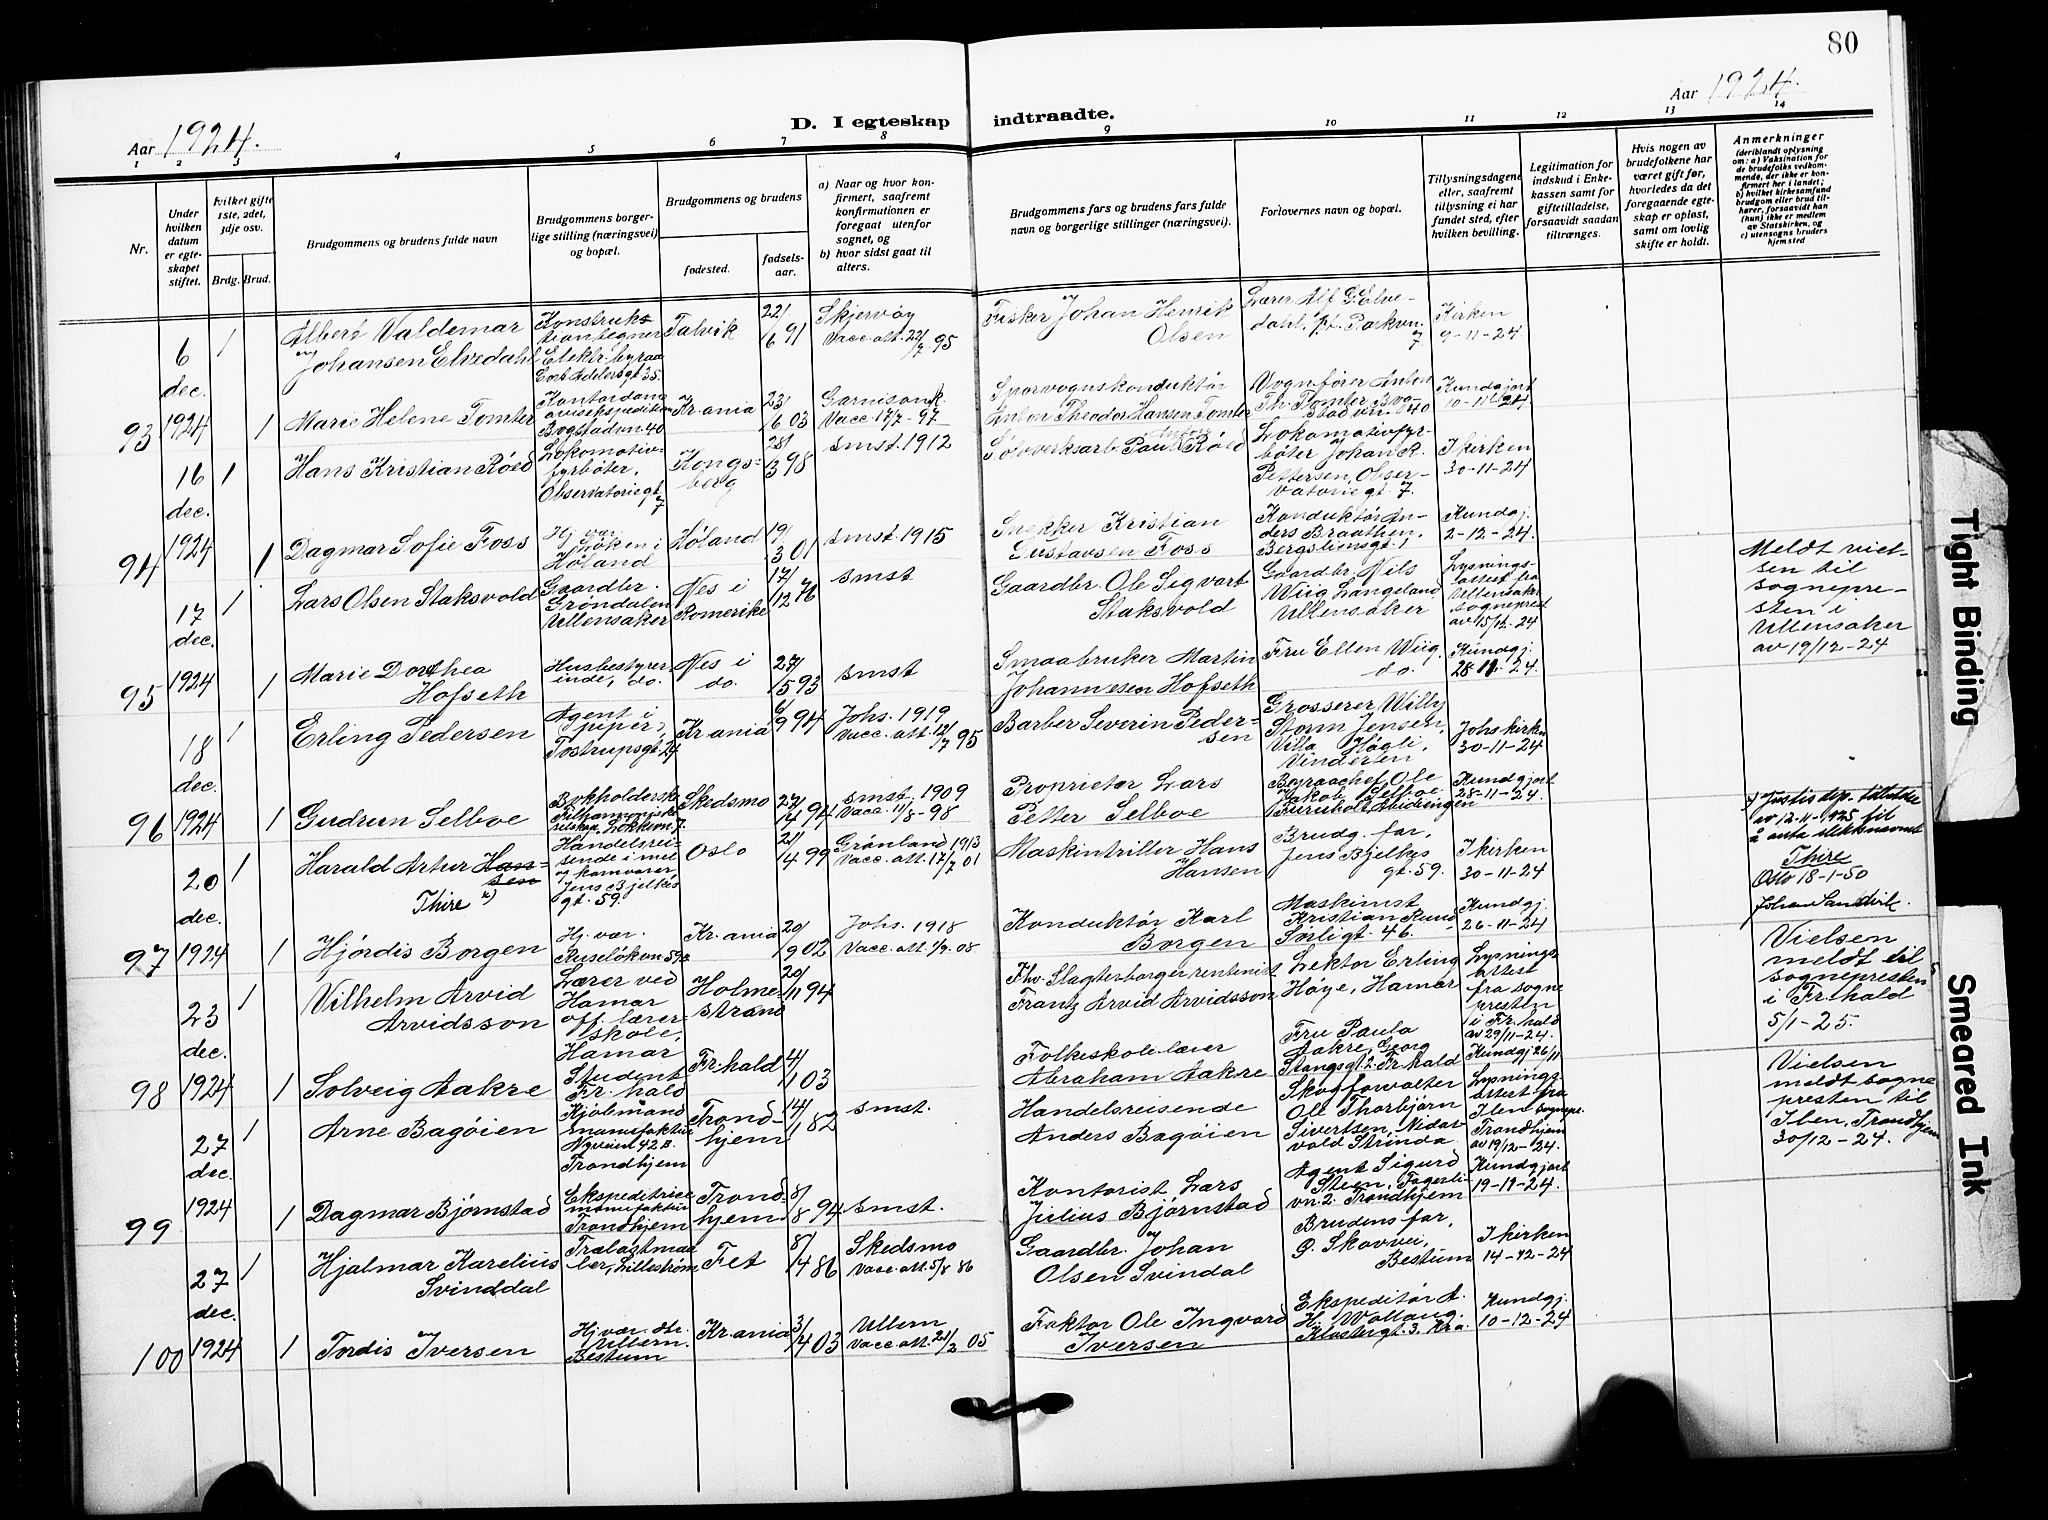 80
Aar 1924.
D. I egteskap indtraadte.
Aar 1924.
1 2 3 4 5 6 7 8 9 10 11 12 13 14
Nr.
Under hvilken datum er egteskapet stiftet.
Hvilket gifte 1ste, 2det, 3dje osv.
Brdg. Brud.
Brudgommens og brudens fulde navn
Brudgommens borgerlige stilling (næringsvei) og bopæl.
Brudgommens og brudens
fødested.
fødselsaar.
a) Naar og hvor konfirmert, saafremt konfirmationen er foregaat utenfor sognet, og
b) hvor sidst gaat til alters.
Brudgommens fars og brudens fars fulde navn og borgerlige stillinger (næringsvei).
Forlovernes navn og bopæl.
Tillysningsdagene eller, saafremt tillysning ei har fundet sted, efter hvilken bevilling.
Legitimation for indskud i Enkekassen samt for giftetilladelse, forsaavidt saadan tiltrænges.
Hvis nogen av brudefolkene har været gift før, hvorledes da det foregaaende egteskap er opløst, samt om lovlig skifte er holdt.
Anmerkninger
(deriblandt oplysning om: a) Vaksination for de brudefolks vedkommende, der ikke er konfirmert her i landet; b) hvilket kirkesamfund brudgom eller brud tilhører, forsaavidt han (hun) ikke er medlem av Statskirken, og c) utensogns bruders hjemsted
93 6 dec. 1924
1 Albert Valdemar Johansen Elvedahl
Konstruktionstegner Elektr. byraa Cort Adelersgt 35.
Talvik 22/6 91
Skjervøy Vacc. att. 22/7-95
Fisker Johan Henrik Olsen
Lærer Alf G. Elvedahl, pt. Parkvn. 7
Kirken 9-11-24
1 Marie Helene Tomter
Kontordame avisekspedition Bogstadvn 40
Kr.ania 23/6 03
Garnisonsk. Vacc 17/7-97
Sporvognskonduktør Anton Theodor Hansen Tomter
Vognfører Anton Th. Tomter Bogstadvn. 40
Kundgjort 10-11-24
94 16 dec. 1924
1 Hans Kristian Røed
Lokomotivfyrbøter, Observatoriegt 7
Kongsberg 28/3 98
smst. 1912
Sølvverksarb. Paul Røed
Lokomotivfyrbøter Johan R. Pettersen, Observatoriegt. 7.
I kirken 30-11-24
1 Dagmar Sofie Foss
Hj.vær. Løken i Høland
Høland 19/3 01
smst. 1915
Snekker Kristian Gustavsen Foss
Konduktør Anders Braathen, Bergsliensgt. 1
Kundgj. 2-12-24
95 17 dec. 1924
1 Lars Olsen Staksvold
Gaardbr. Grøndalen Ullensaker
Nes i Romerike 17/12 76
smst
Gaardbr. Ole Sigvart Staksvold
Gaardbr. Nils Wiig Langeland Ullensaker
Lysningsattest fra Ullensaker sogneprest av 15/12-24
Meldt vielsen til sognepresten i Ullensaker av 19/12-24
1 Marie Dorthea Hofseth
Husbestyrerinde, do.
Nes i do. 27/5 93
smst
Smaabruker Martin Johannesen Hofseth
Fru Ellen Wiig do.
Kundgj. 28-11-24.
96 18 dec. 1924
1 Erling Pedersen
Agent i papir, Tostrupsgt. 24
Kr.ania 6/9 94
Johs. 1919 Vacc. att. 12/7 95
Barber Severin Pedersen
Grosserer Willy Storm Jensen, Villa Høgli, Vinderen
Johs kirken 30-11-24
1 Gudrun Selboe
Bokholderske Filharmoniske selskap, Løkkevn 7.
Skedsmo 27/4 94
smst. 1909 Vacc. 11/8-98
Proprietær Lars Petter Selboe
Byraachef Ole Jakob Selboe
Kundgjort 28-11-24.
97 20 dec. 1924
1 Harald Artur Hansen Thire x)
Handelsreisende i mel og kornvarer Jens Bjelkesgt. 59.
Oslo 21/4 99
Grønland 1913 Vacc. att. 17/7 01
Maskintriller Hans Hansen
Brudg. far, Jens Bjelkes gt. 59.
I kirken 30-11-24
x) Justisdep. tillatelse av 12-11-1925 til å anta slektsnavnet Thire
Oslo 18-1-50
Johan Sandvik.
1 Hjørdis Borgen
Hj. vær. Ruseløkvn 59
Kr.ania 20/1 902
Johs. 1918 Vacc. att. 1/9.08
Konduktør Karl Borgen
Maskinist Kristian Rund, Sørligt. 46.
Kundgj. 26-11-24
98 23 dec. 1924
1 Vilhelm Arvid Arvidsson
Lærer ved Hamar off. lærerskole, Hamar
Holmestrand 20/11 94
Fhv. Slagterborger rentenist Frantz Arvid Arvidsson
Lektor Erling Høye, Hamar
Lysningsattest fra sognepresten i Fr.hald av 29/11-24.
Vielsen meldt til sognepresten i Fr.hald 5/1-25.
1 Solveig Aakre
Student Fr.hald
Fr.hald 4/1 03
Folkeskolelærer Abraham Aakre
Fru Paula Aakre, Georg Stangsgt 2. Fr.hald
Kundgj 26/11
99 27 dec. 1924
1 Arne Bagøien
Kjøbmand manufaktur Nyveien 42 B. Trondhjem
Trondhjem 14/1 82
smst.
Handelsreisende Anders Bagøien
Skogforvalter Ole Thorbjørn Sivertsen, Nidarvold Strinda
Lysningsattest fra Ilen sognepr. Trondhjem av 19/12-24.
Vielsen meldt sognepresten til Ilen, Trondhjem 30/12-24.
1 Dagmar Bjørnstad
Ekspeditrice manufaktur Trondhjem
Trondhjem 8/8 94
smst.
Kontorist Lars Julius Bjørnstad
Agent Sigurd Steen, Fagerlivn. 2. Trondhjem
Kundgjort 19-11-24.
100 27 dec. 1924
1 Hjalmar Karelius Svinddal
Trælastmaaler, Lillestrøm
Fet 8/4 86
Skedsmo Vacc. att. 5/8 86
Gaardbr. Johan Olsen Svindal
Brudens far, O. Skovvei, Bestum
I kirken 14-12-24
1 Tordis Iversen
Hj.vær. dtr. Ullern. Bestum
Kr.ania 3/4 03
Ullern Vacc. att. 21/2 05
Faktor Ole Ingvard Iversen
Ekspeditør A. H. Wollaug. Klostergt. 3, Kra.
Kundgj. 10-12-24
Tight Binding
Smeared Ink